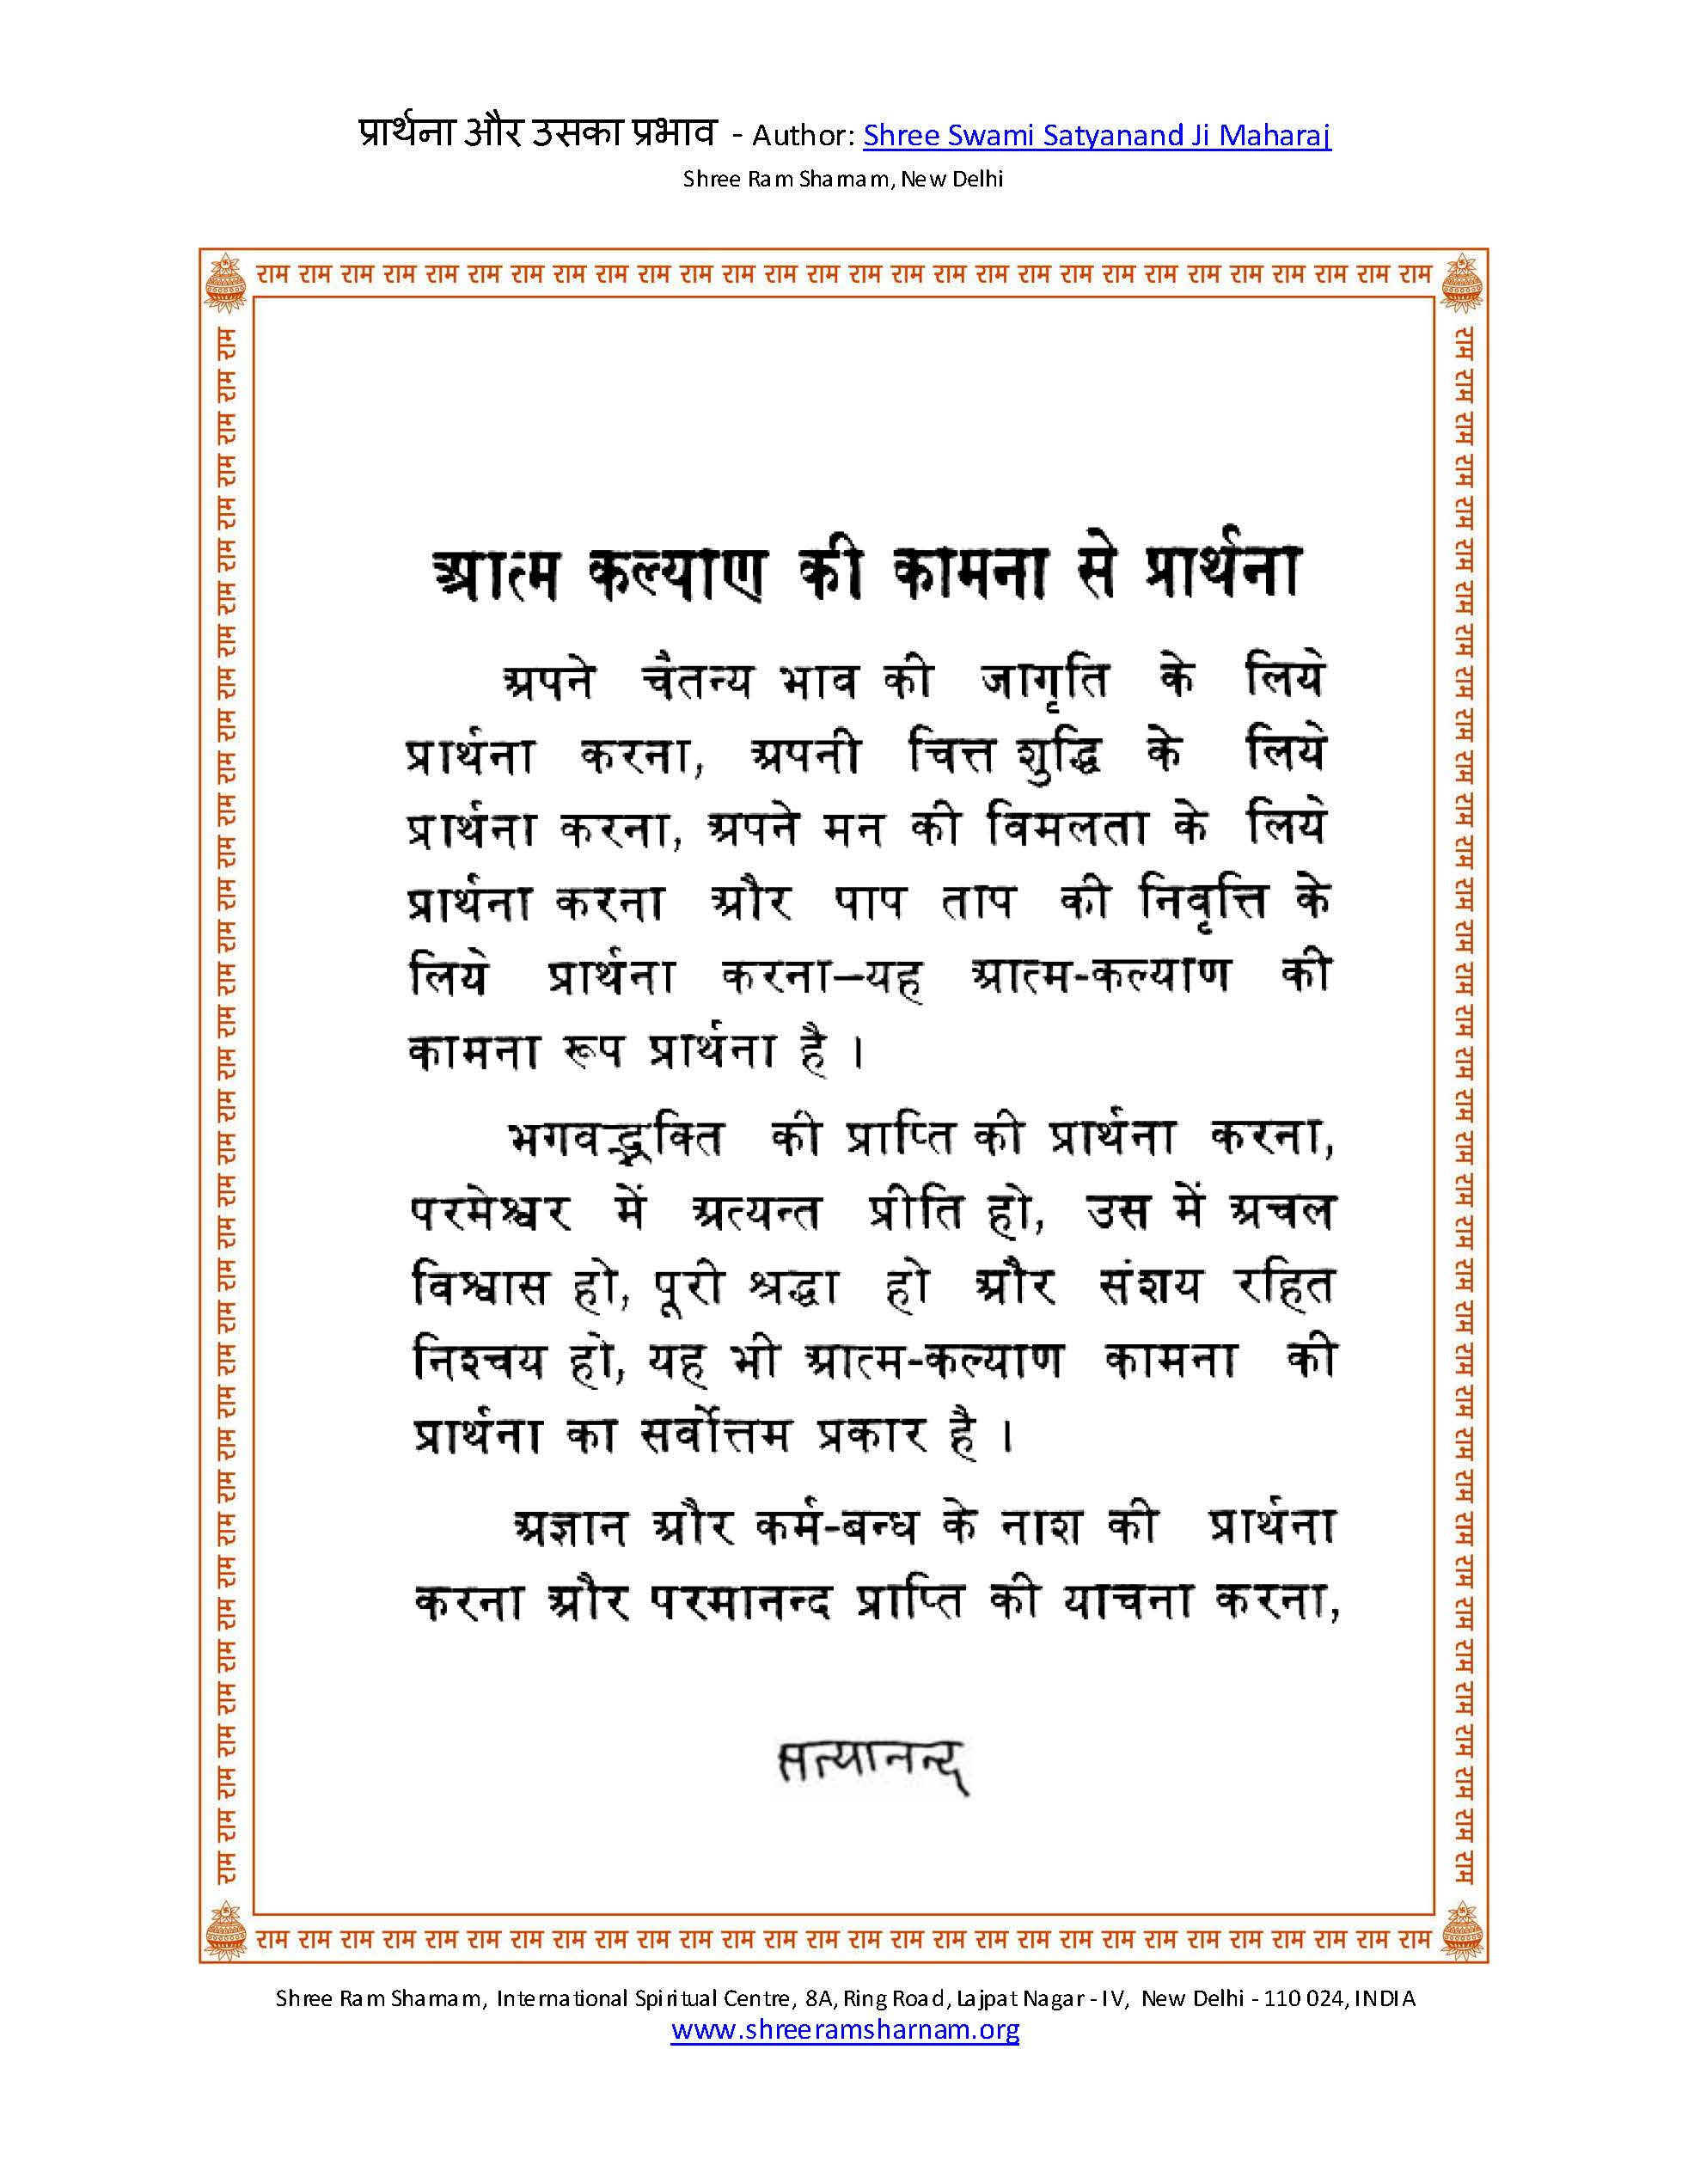 प्रार्थना और उसका प्रभाव - Author: Shree Swami Satyanand Ji Maharaj
Shree Ram Sharnam, New Delhi
राम राम राम राम राम राम राम राम राम राम राम राम राम राम राम राम राम राम राम राम राम राम राम राम राम राम राम राम
आत्म कल्याण की कामना से प्रार्थना
अपने चैतन्य भाव की जागृति के लिये
प्रार्थना करना, अपनी चित्त शुद्धि के लिये
प्रार्थना करना, अपने मन की विमलता के लिये
प्रार्थना करना और पाप ताप की निवृत्ति के
लिये प्रार्थना करना–यह आत्म-कल्याण की
कामना रूप प्रार्थना है ।
भगवद्भक्ति की प्राप्ति की प्रार्थना करना,
परमेश्वर में अत्यन्त प्रीति हो, उस में अचल
विश्वास हो, पूरी श्रद्धा हो और संशय रहित
निश्चय हो, यह भी आत्म-कल्याण कामना की
प्रार्थना का सर्वोत्तम प्रकार है ।
अज्ञान और कर्म-बन्ध के नाश की प्रार्थना
करना और परमानन्द प्राप्ति की याचना करना,
सत्यानन्द
राम राम राम राम राम राम राम राम राम राम राम राम राम राम राम राम राम राम राम राम राम राम राम राम राम राम राम राम
Shree Ram Sharnam, International Spiritual Centre, 8A, Ring Road, Lajpat Nagar - IV, New Delhi - 110 024, INDIA
www.shreeramsharnam.org